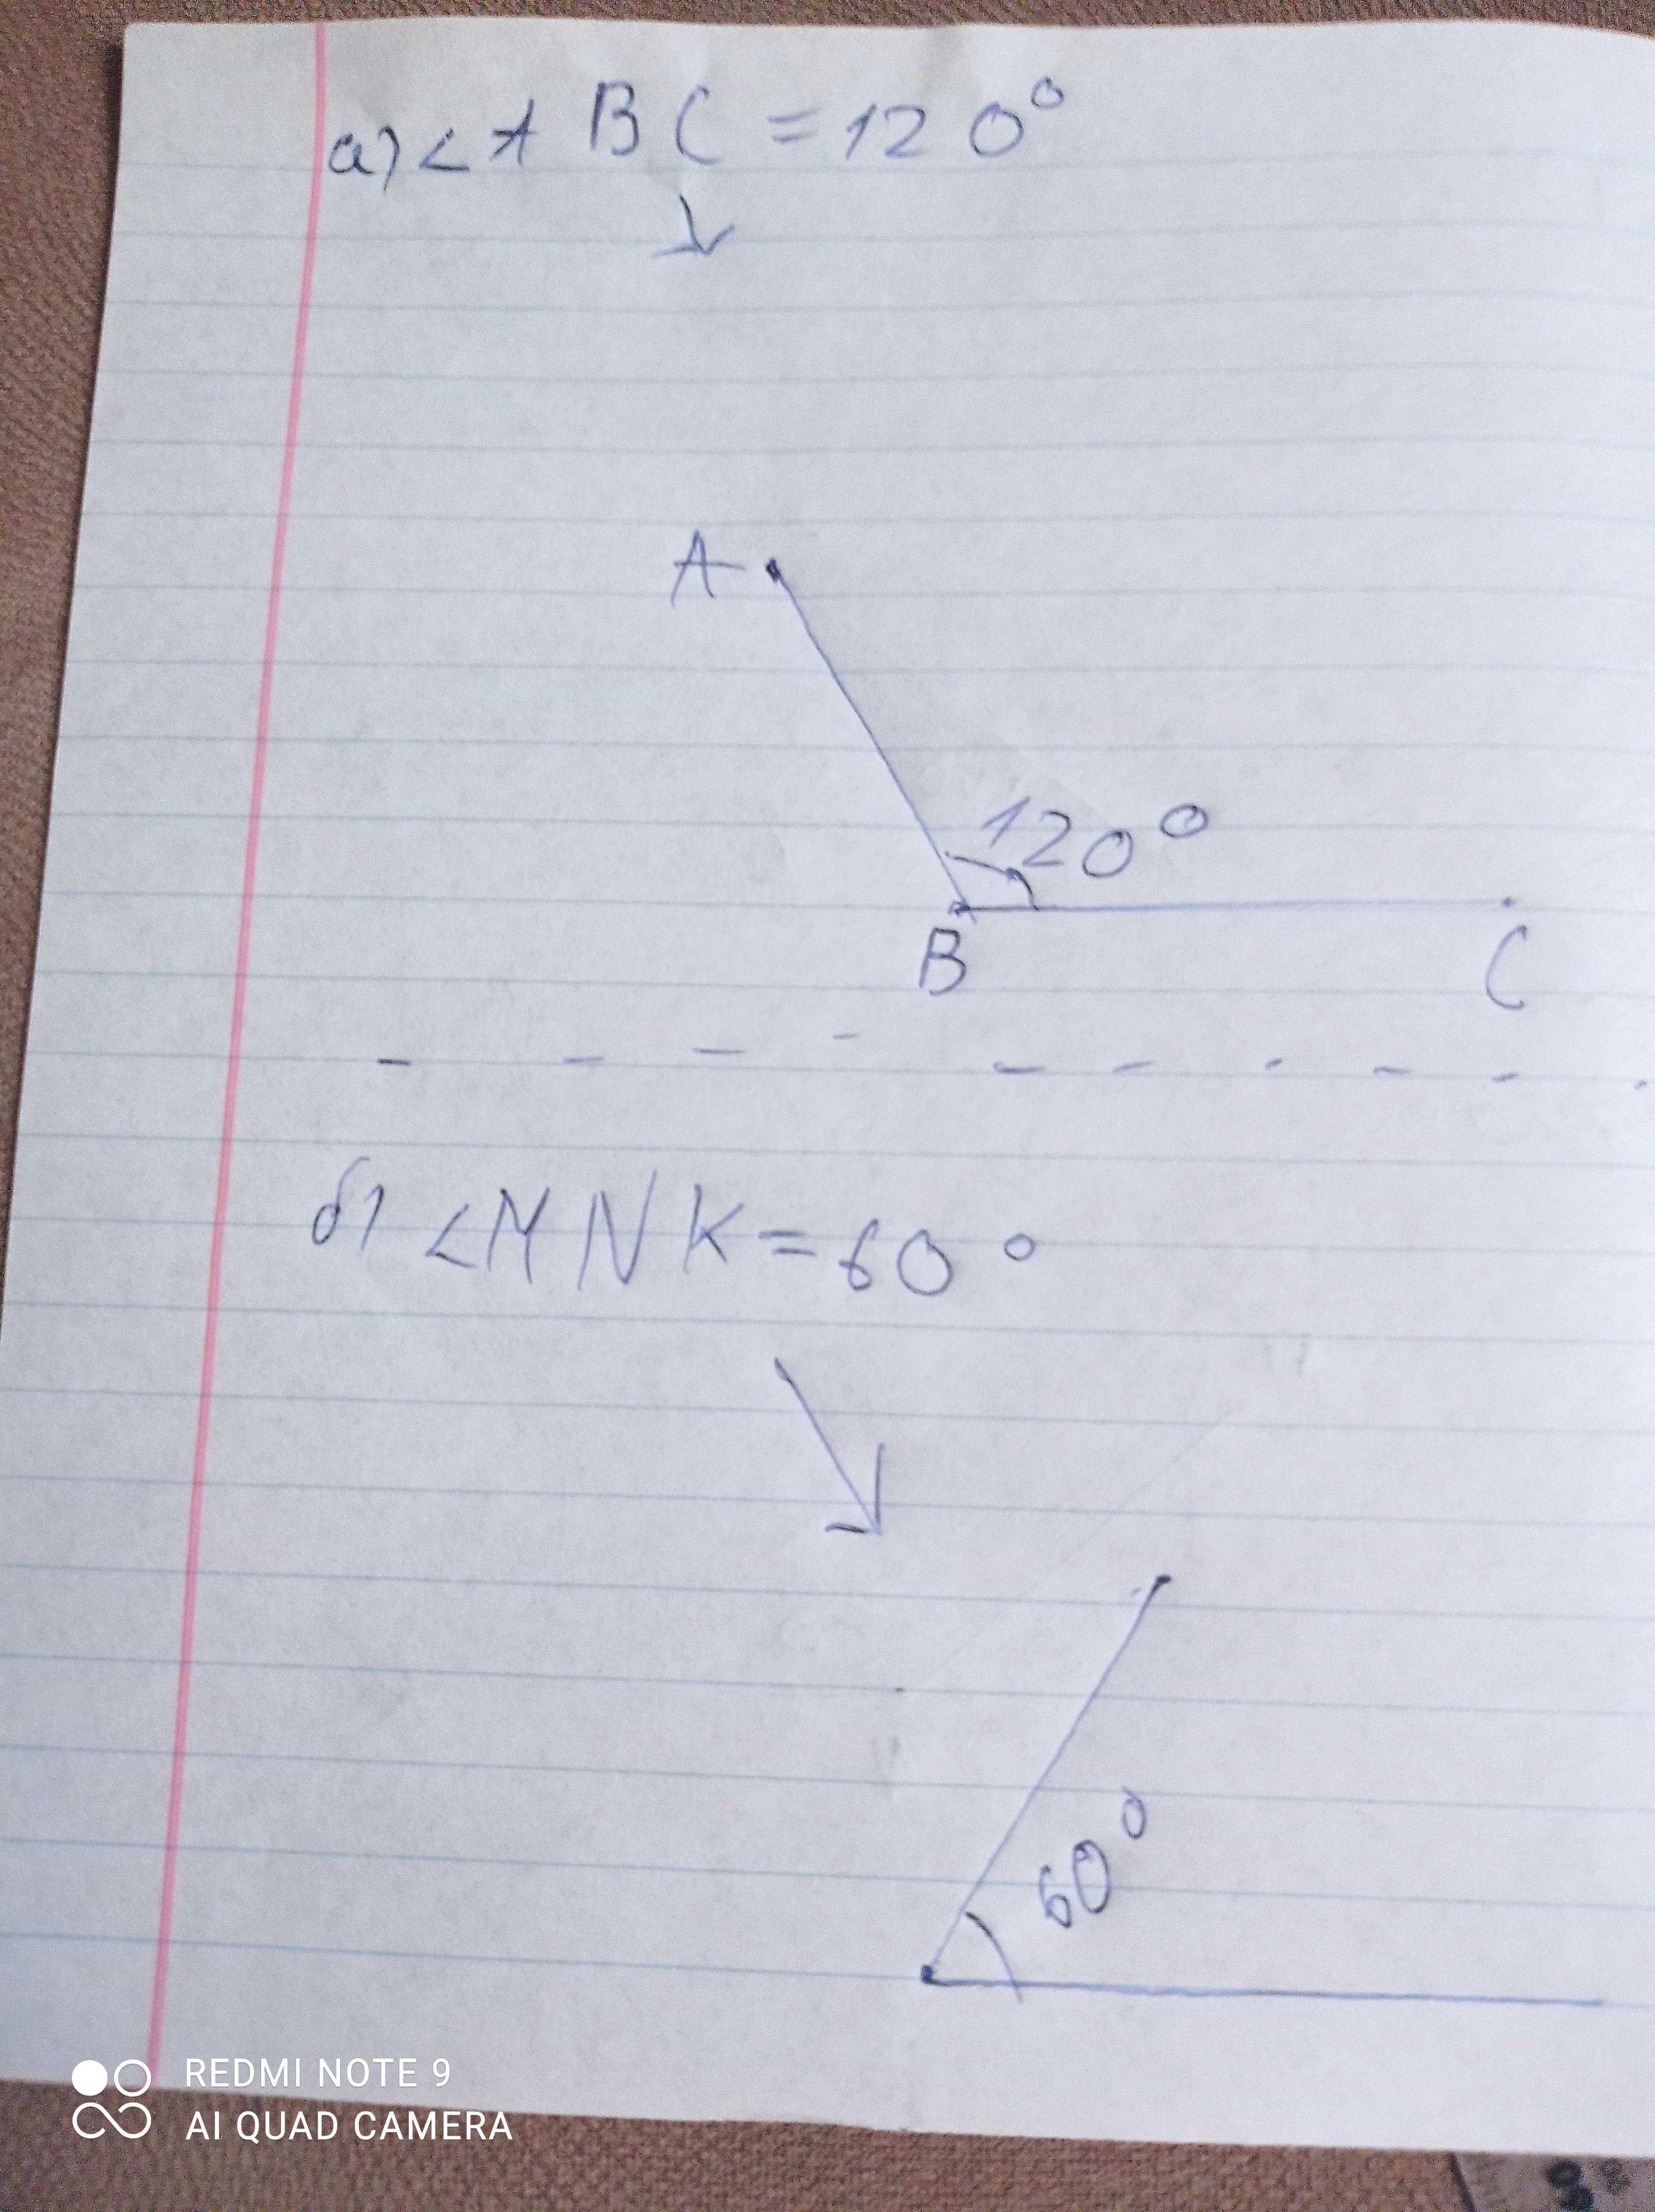 а) ∠ A B C = 120°
A
120°
B
C
б) ∠ M N K = 60°
60°
REDMI NOTE 9
AI QUAD CAMERA